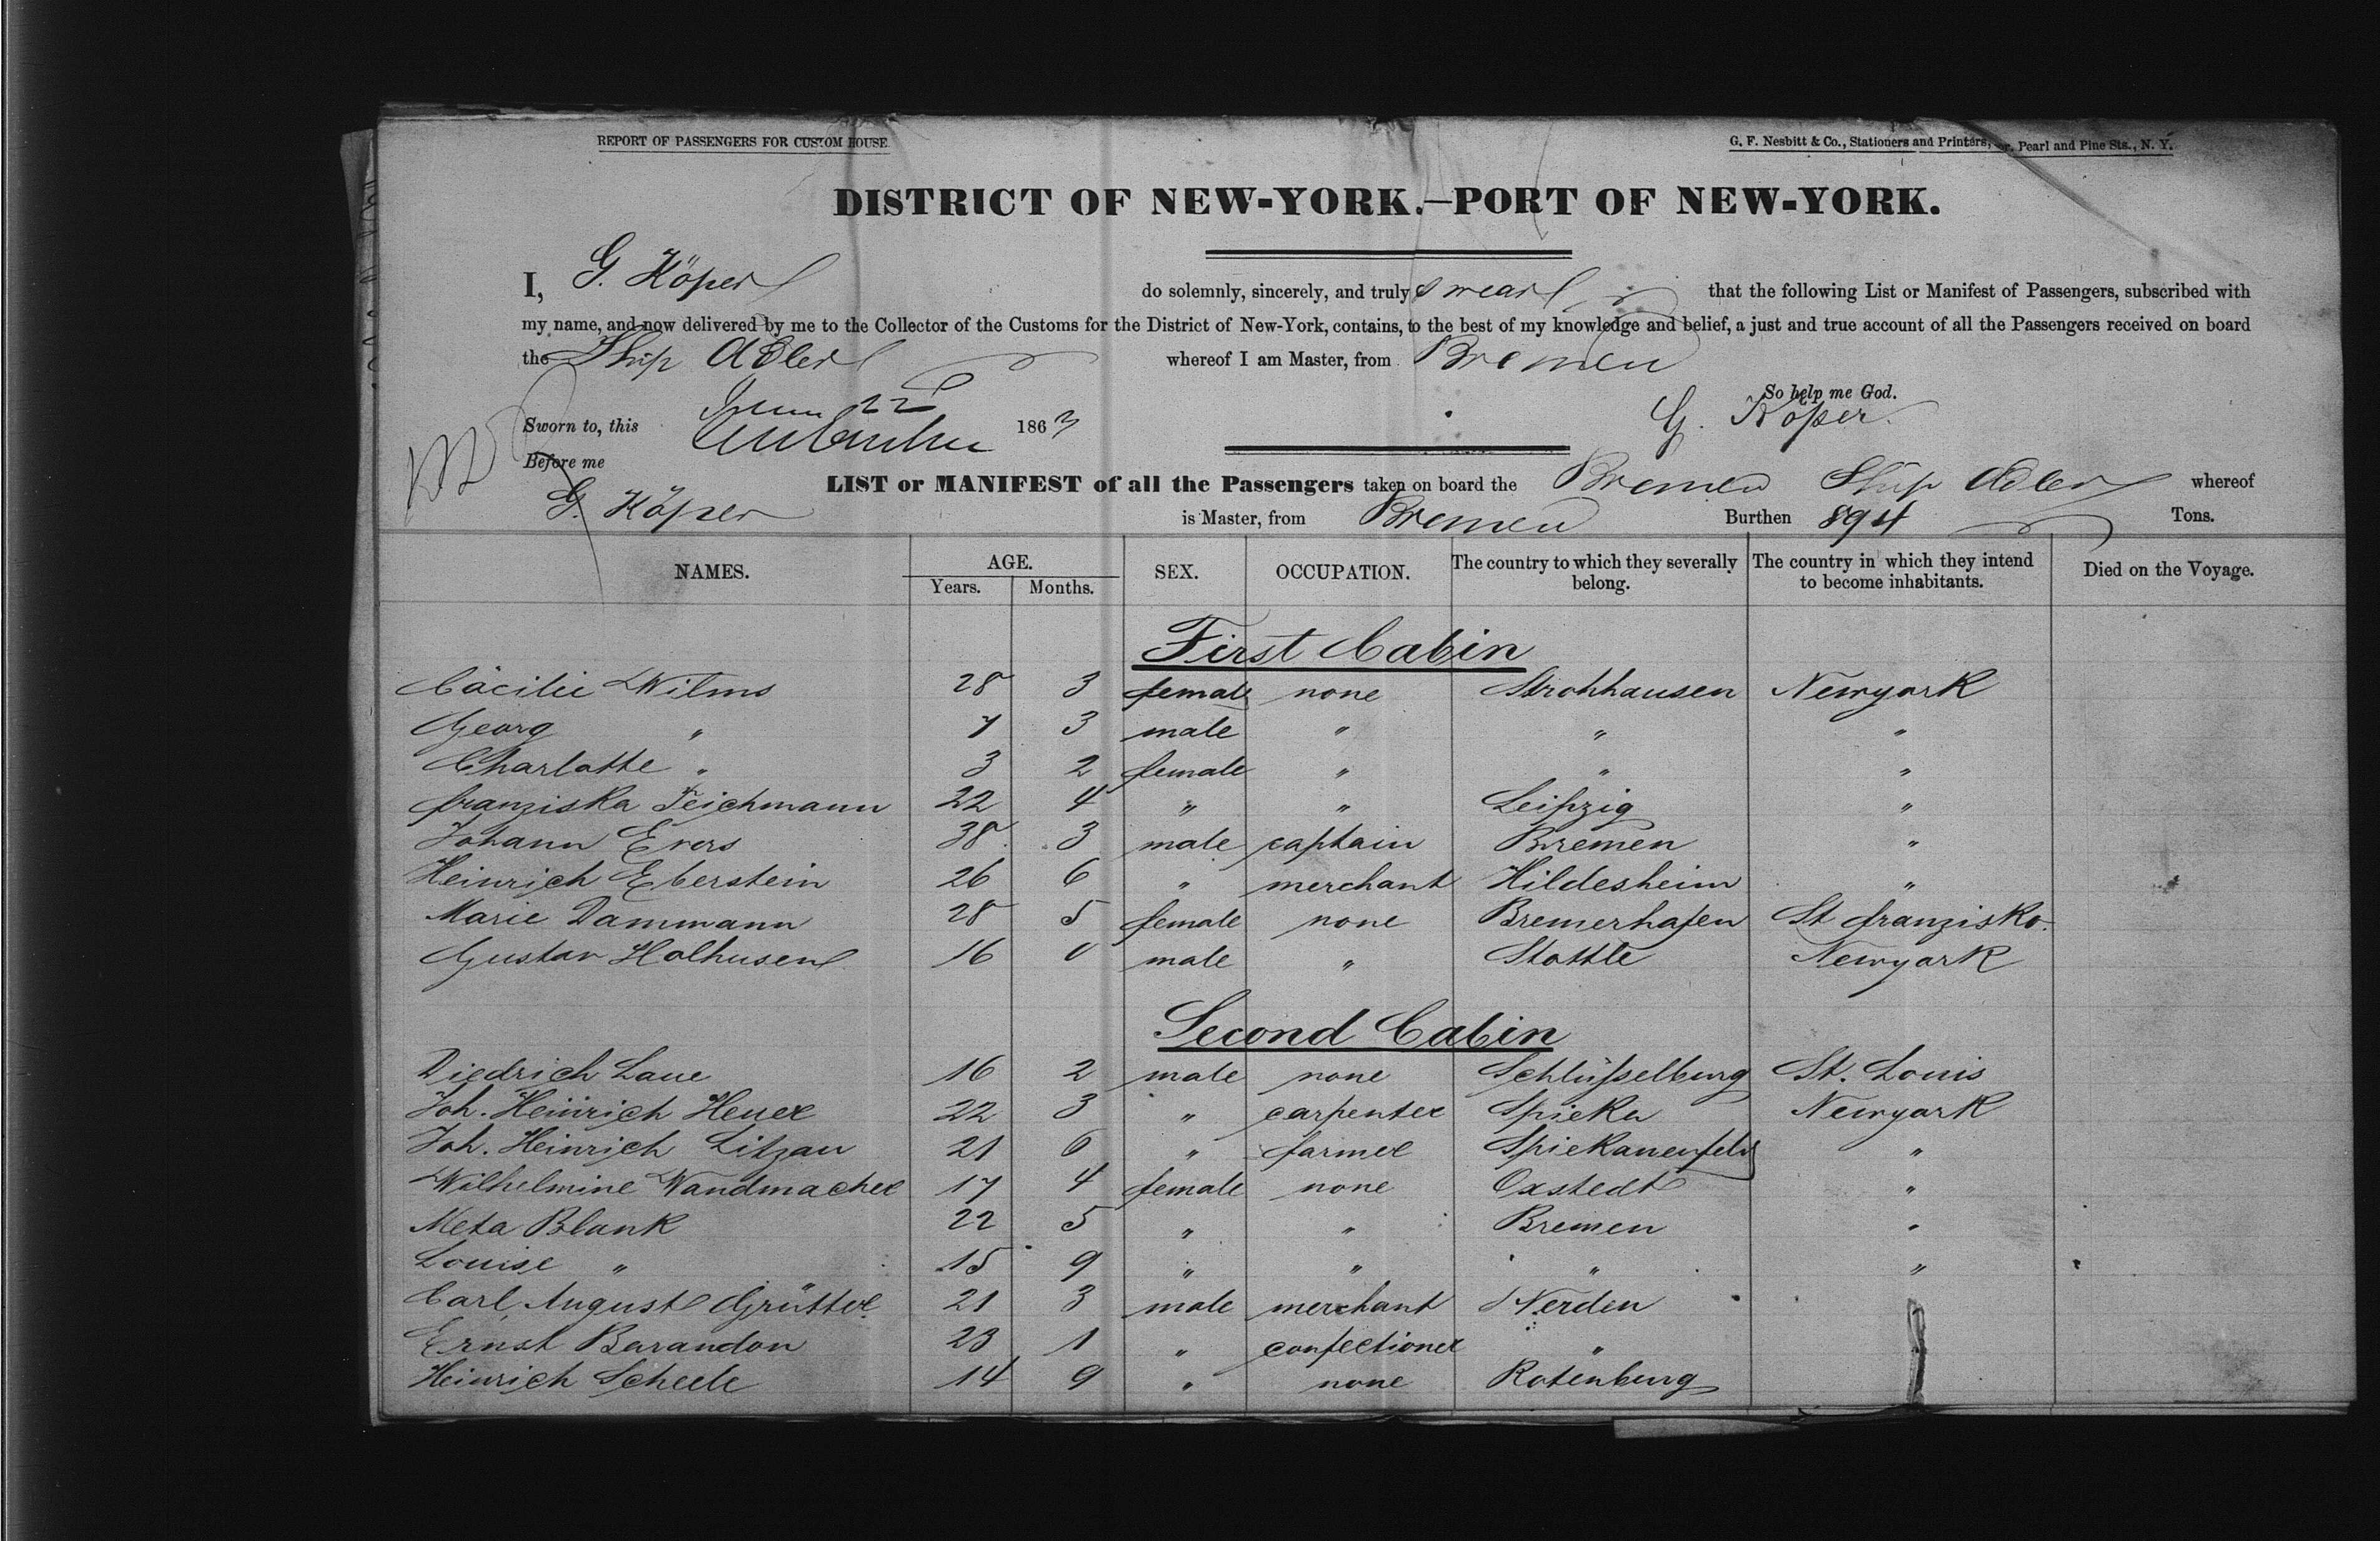 REPORT OF PASSENGERS FOR CUSTOM HOUSE
G. F. Nesbitt & Co., Stationers and Printers, cor. Pearl and Pine Sts., N. Y.
DISTRICT OF NEW-YORK.—PORT OF NEW-YORK.
I, G. Köper do solemnly, sincerely, and truly swear that the following List or Manifest of Passengers, subscribed with
my name, and now delivered by me to the Collector of the Customs for the District of New-York, contains, to the best of my knowledge and belief, a just and true account of all the Passengers received on board
the Ship Adler whereof I am Master, from Bremen
So help me God.
Sworn to, this June 22d 1863 G. Köper
Before me
LIST or MANIFEST of all the Passengers taken on board the Bremen Ship Adler whereof
G. Köper is Master, from Bremen Burthen 894 Tons.
NAMES. AGE. Years. Months. SEX. OCCUPATION. The country to which they severally belong. The country in which they intend to become inhabitants. Died on the Voyage.
First Cabin
Cäcilie Wilms 28 3 female none Strohhausen Newyork
Georg " 7 3 male " " "
Charlotte " 3 2 female " " "
Franziska Teichmann 22 4 " " Leipzig "
Johann Evers 38 3 male captain Bremen "
Heinrich Eberstein 26 6 " merchant Hildesheim "
Marie Dammann 28 5 female none Bremerhafen St Franzisko.
Gustav Holhusen 16 0 male " Stottle Newyork
Second Cabin
Diedrich Laue 16 2 male none Schlüsselburg St. Louis
Joh. Heinrich Heuer 22 3 " carpenter Spieka Newyork
Joh. Heinrich Litzau 21 6 " farmer Spiekaneufeld "
Wilhelmine Wandmacher 17 4 female none Oxstedt "
Meta Blank 22 5 " " Bremen "
Louise " 15 9 " " " "
Carl August Grütter 21 3 male merchant Verden
Ernst Barandon 23 1 " confectioner "
Heinrich Scheele 14 9 " none Rotenburg